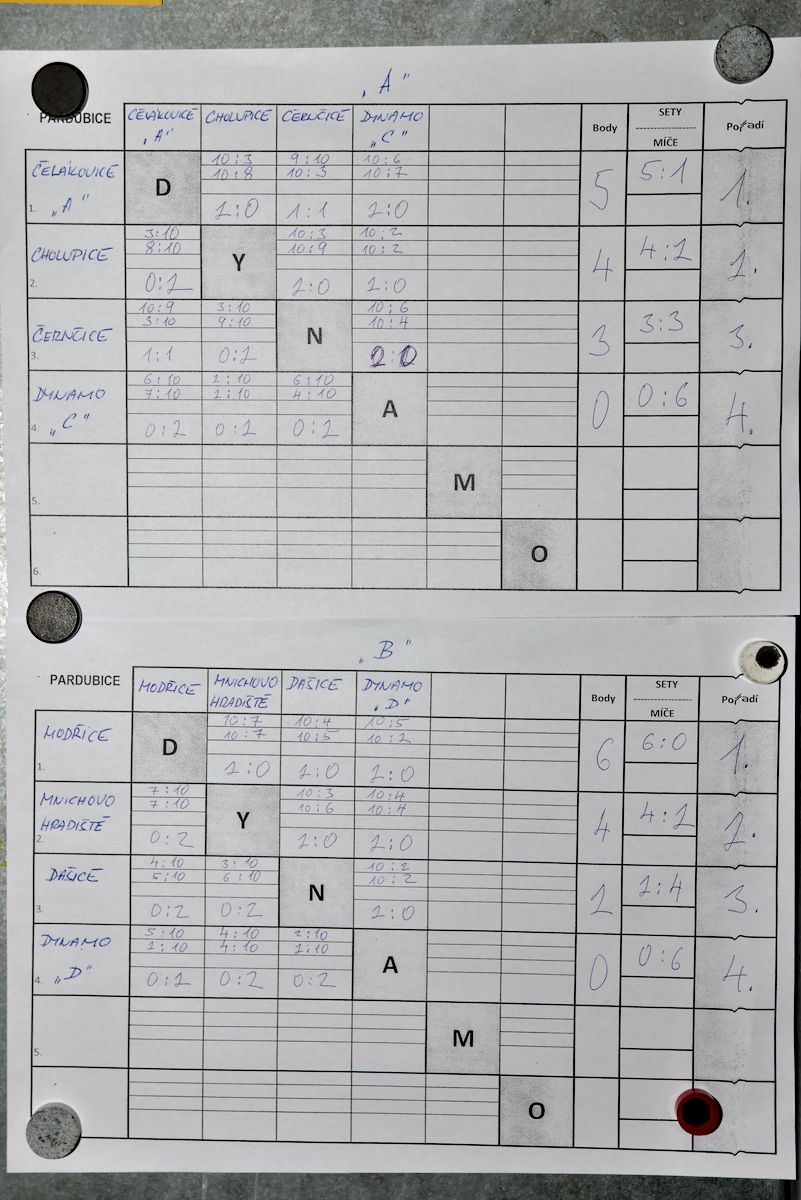 „A"
PARDUBICE ČELÁKOVICE CHOLUPICE ČERNČICE DYNAMO Body SETY Pořadí
„A" „C" MÍČE
ČELÁKOVICE D 10:3 9:10 10:6 5 5:1 1.
10:8 10:3 10:7
1. „A" 2:0 1:1 2:0
CHOLUPICE 3:10 Y 10:3 10:2 4 4:2 2.
8:10 10:9 10:2
2. 0:2 2:0 2:0
ČERNČICE 10:9 3:10 N 10:6 3 3:3 3.
3:10 9:10 10:4
3. 1:1 0:2 2:0
DYNAMO 6:10 2:10 6:10 A 0 0:6 4.
7:10 2:10 4:10
4. „C" 0:2 0:2 0:2
5. M
6. O
„B"
PARDUBICE MODŘICE MNICHOVO DAŠICE DYNAMO Body SETY Pořadí
HRADIŠTĚ „D" MÍČE
MODŘICE D 10:7 10:4 10:5 6 6:0 1.
10:7 10:5 10:2
1. 2:0 2:0 2:0
MNICHOVO 7:10 Y 10:3 10:4 4 4:2 2.
HRADIŠTĚ 7:10 10:6 10:4
2. 0:2 2:0 2:0
DAŠICE 4:10 3:10 N 10:2 2 2:4 3.
5:10 6:10 10:2
3. 0:2 0:2 2:0
DYNAMO 5:10 4:10 2:10 A 0 0:6 4.
2:10 4:10 2:10
4. „D" 0:2 0:2 0:2
5. M
O